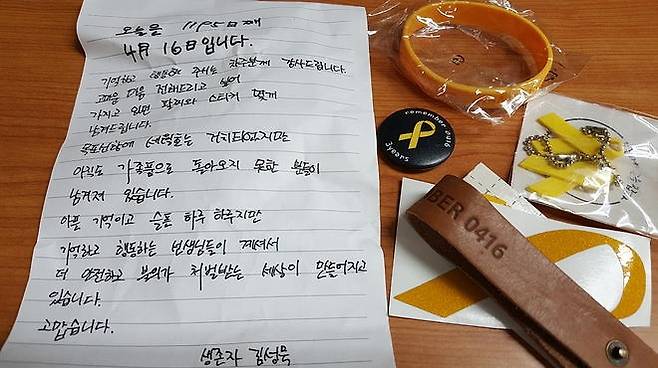 오늘은 1105일째
4月 16日입니다.
기억하고 행동해 주시는 관주분께 감사드립니다.
고마운 마음 전해드리고 싶어
가지고 있던 팔찌와 스티커 몇개
남겨드립니다.
목포신항에 세월호는 거치되었지만
아직도 가족품으로 돌아오지 못한 분들이
남겨져 있습니다.
아픈 기억이고 슬픈 하루 하루지만
기억하고 행동하는 선생님들이 계셔서
더 안전하고 불의가 처벌받는 세상이 만들어지고
있습니다.
고맙습니다.
생존자 김성묵
remember 0416
3years
BER 0416